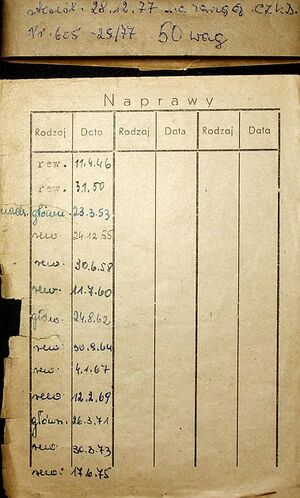 28.12.77 na
Nr. 605-25/77 50 wag
Naprawy
Rodzaj Data Rodzaj Data Rodzaj Data
rew. 11.4.46
rew. 3.1.50
główn. 23.3.53
rew. 24.12.55
rew. 30.6.58
rew. 11.7.60
główn. 24.8.62
rew. 30.8.64
rew. 4.1.67
rew. 12.2.69
główn. 26.3.71
rew. 30.3.73
rew. 17.6.75